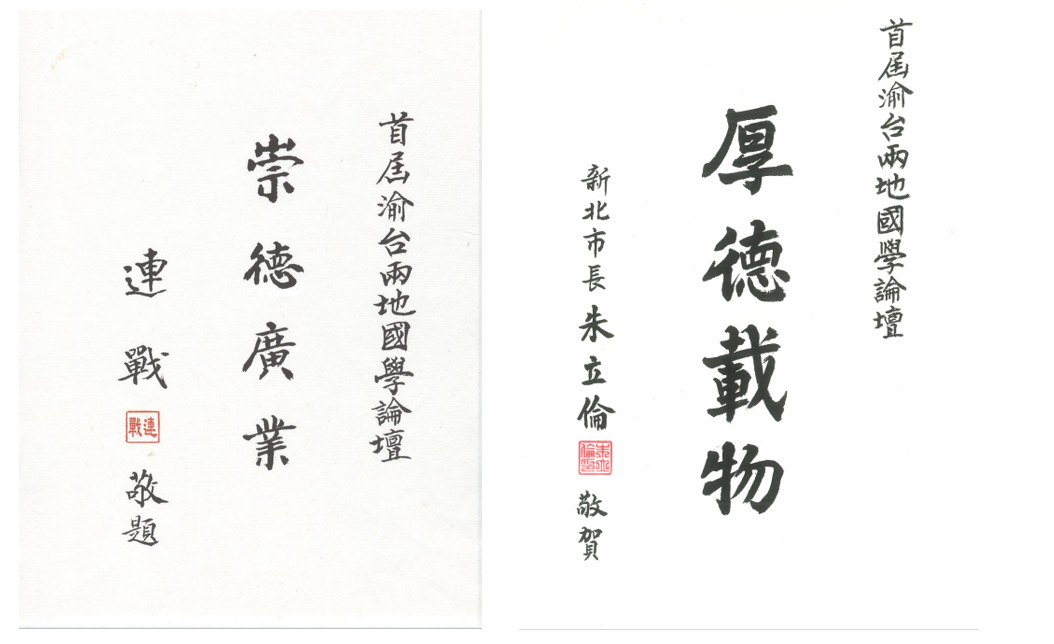 首屆渝台兩地國學論壇
崇德廣業
連戰
連戰
敬題
首屆渝台兩地國學論壇
厚德載物
新北市長朱立倫
敬賀